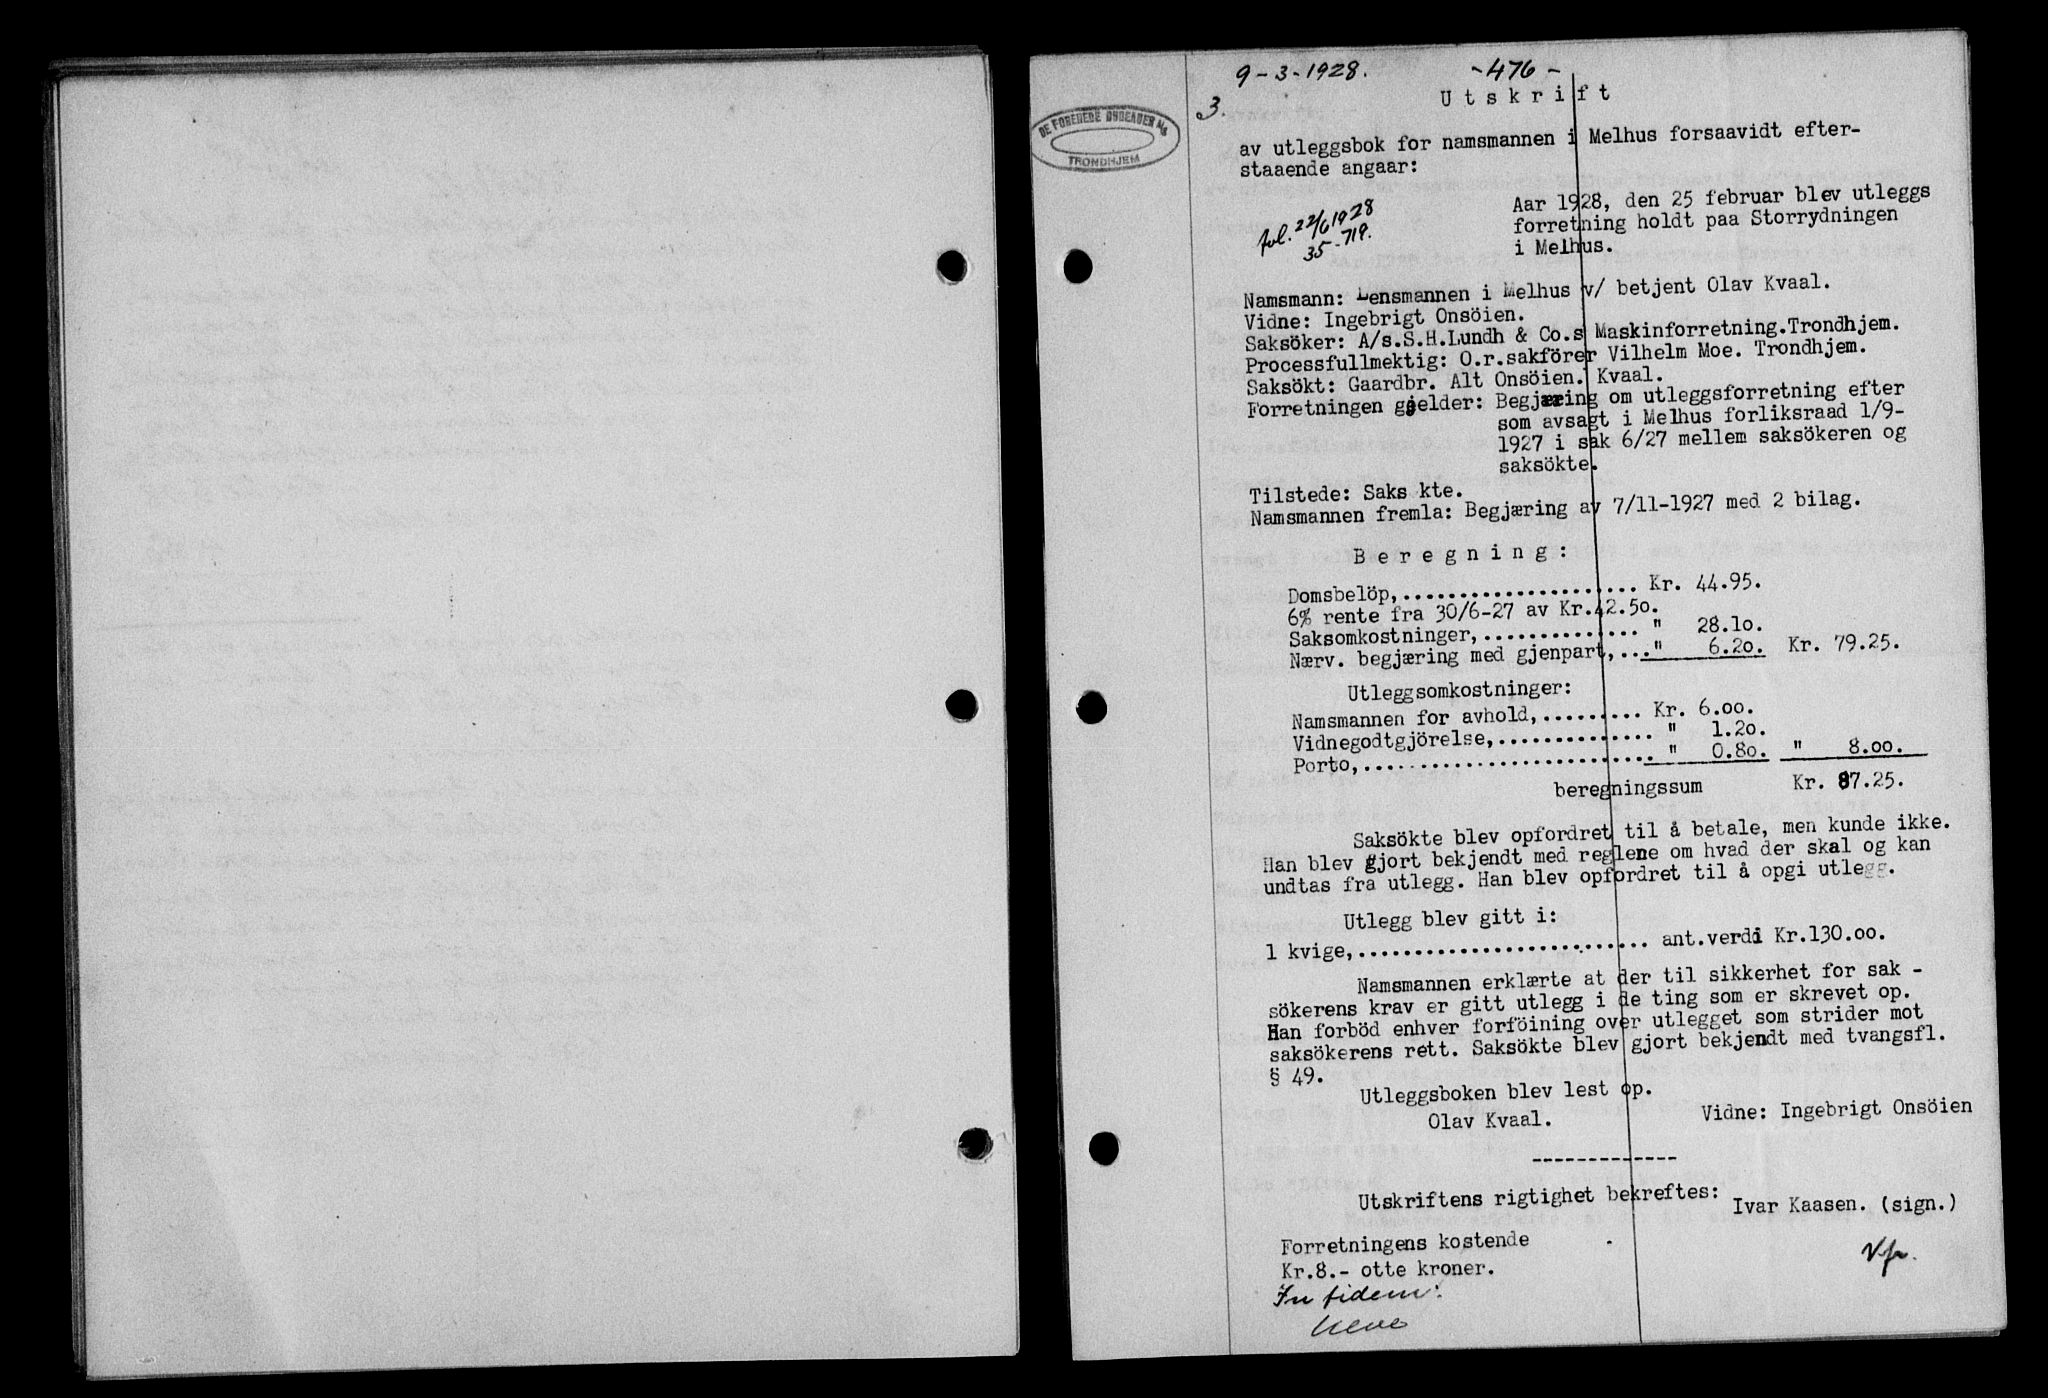 9-3-1928.
-476-
3.
DE FORENEDE BYGEADER A/S
TRONDHJEM
Utskrift
av utleggsbok for namsmannen i Melhus forsaavidt efter-
staaende angaar:
Aar 1928, den 25 februar blev utleggs
forretning holdt paa Storrydningen
i Melhus.
avl. 22/6 1928
35-719.
Namsmann: Lensmannen i Melhus v/ betjent Olav Kvaal.
Vidne: Ingebrigt Onsöien.
Saksöker: A/s.S.H.Lundh & Co.s Maskinforretning.Trondhjem.
Processfullmektig: O.r.sakförer Vilhelm Moe. Trondhjem.
Saksökt: Gaardbr. Alt Onsöien. Kvaal.
Forretningen gjelder: Begjæring om utleggsforretning efter
som avsagt i Melhus forliksraad 1/9-
1927 i sak 6/27 mellem saksökeren og
saksökte.
Tilstede: Saks kte.
Namsmannen fremla: Begjæring av 7/11-1927 med 2 bilag.
Beregning:
Domsbelöp,...................... Kr. 44.95.
6% rente fra 30/6-27 av Kr.42.50.
Saksomkostninger,............... " 28.10.
Nærv. begjæring med gjenpart,...." 6.20. Kr. 79.25.
Utleggsomkostninger:
Namsmannen for avhold,.......... Kr. 6.00.
Vidnegodtgjörelse,............... " 1.20.
Porto,........................... " 0.80. " 8.00.
beregningssum Kr. 87.25.
Saksökte blev opfordret til å betale, men kunde ikke.
Han blev gjort bekjendt med reglene om hvad der skal og kan
undtas fra utlegg. Han blev opfordret til å opgi utlegg.
Utlegg blev gitt i:
1 kvige,........................... ant.verdi Kr.130.00.
Namsmannen erklærte at der til sikkerhet for sak -
sökerens krav er gitt utlegg i de ting som er skrevet op.
Han forböd enhver forföining over utlegget som strider mot
saksökerens rett. Saksökte blev gjort bekjendt med tvangsfl.
§ 49.
Utleggsboken blev lest op.
Olav Kvaal. Vidne: Ingebrigt Onsöien
-------------
Utskriftens rigtighet bekreftes:
Ivar Kaasen. (sign.)
Forretningens kostende
Kr.8.- otte kroner.
In fidem: